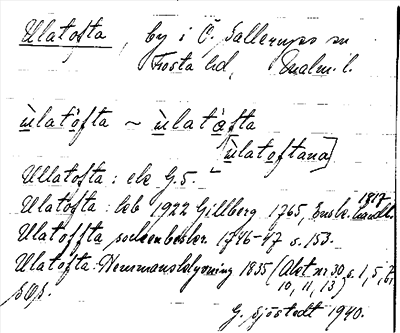 Ulatofta, by i Ö. Sallerups sn
Frosta hd, Malm. l.
ùlatòfta ~ ùlatòfta
[ùlatoftana]
Ullatofta: ek G.5.
Ulatofta: kb 1922 Gillberg 1765, Ensk. 1817
Ulatoffta sockenbeskr. 1746-47 s. 153.
Ulatofta: 1855 (Akt nr 30, s. 1, 5, 7,
10, 11, 13)
G. Sjöstedt 1940.